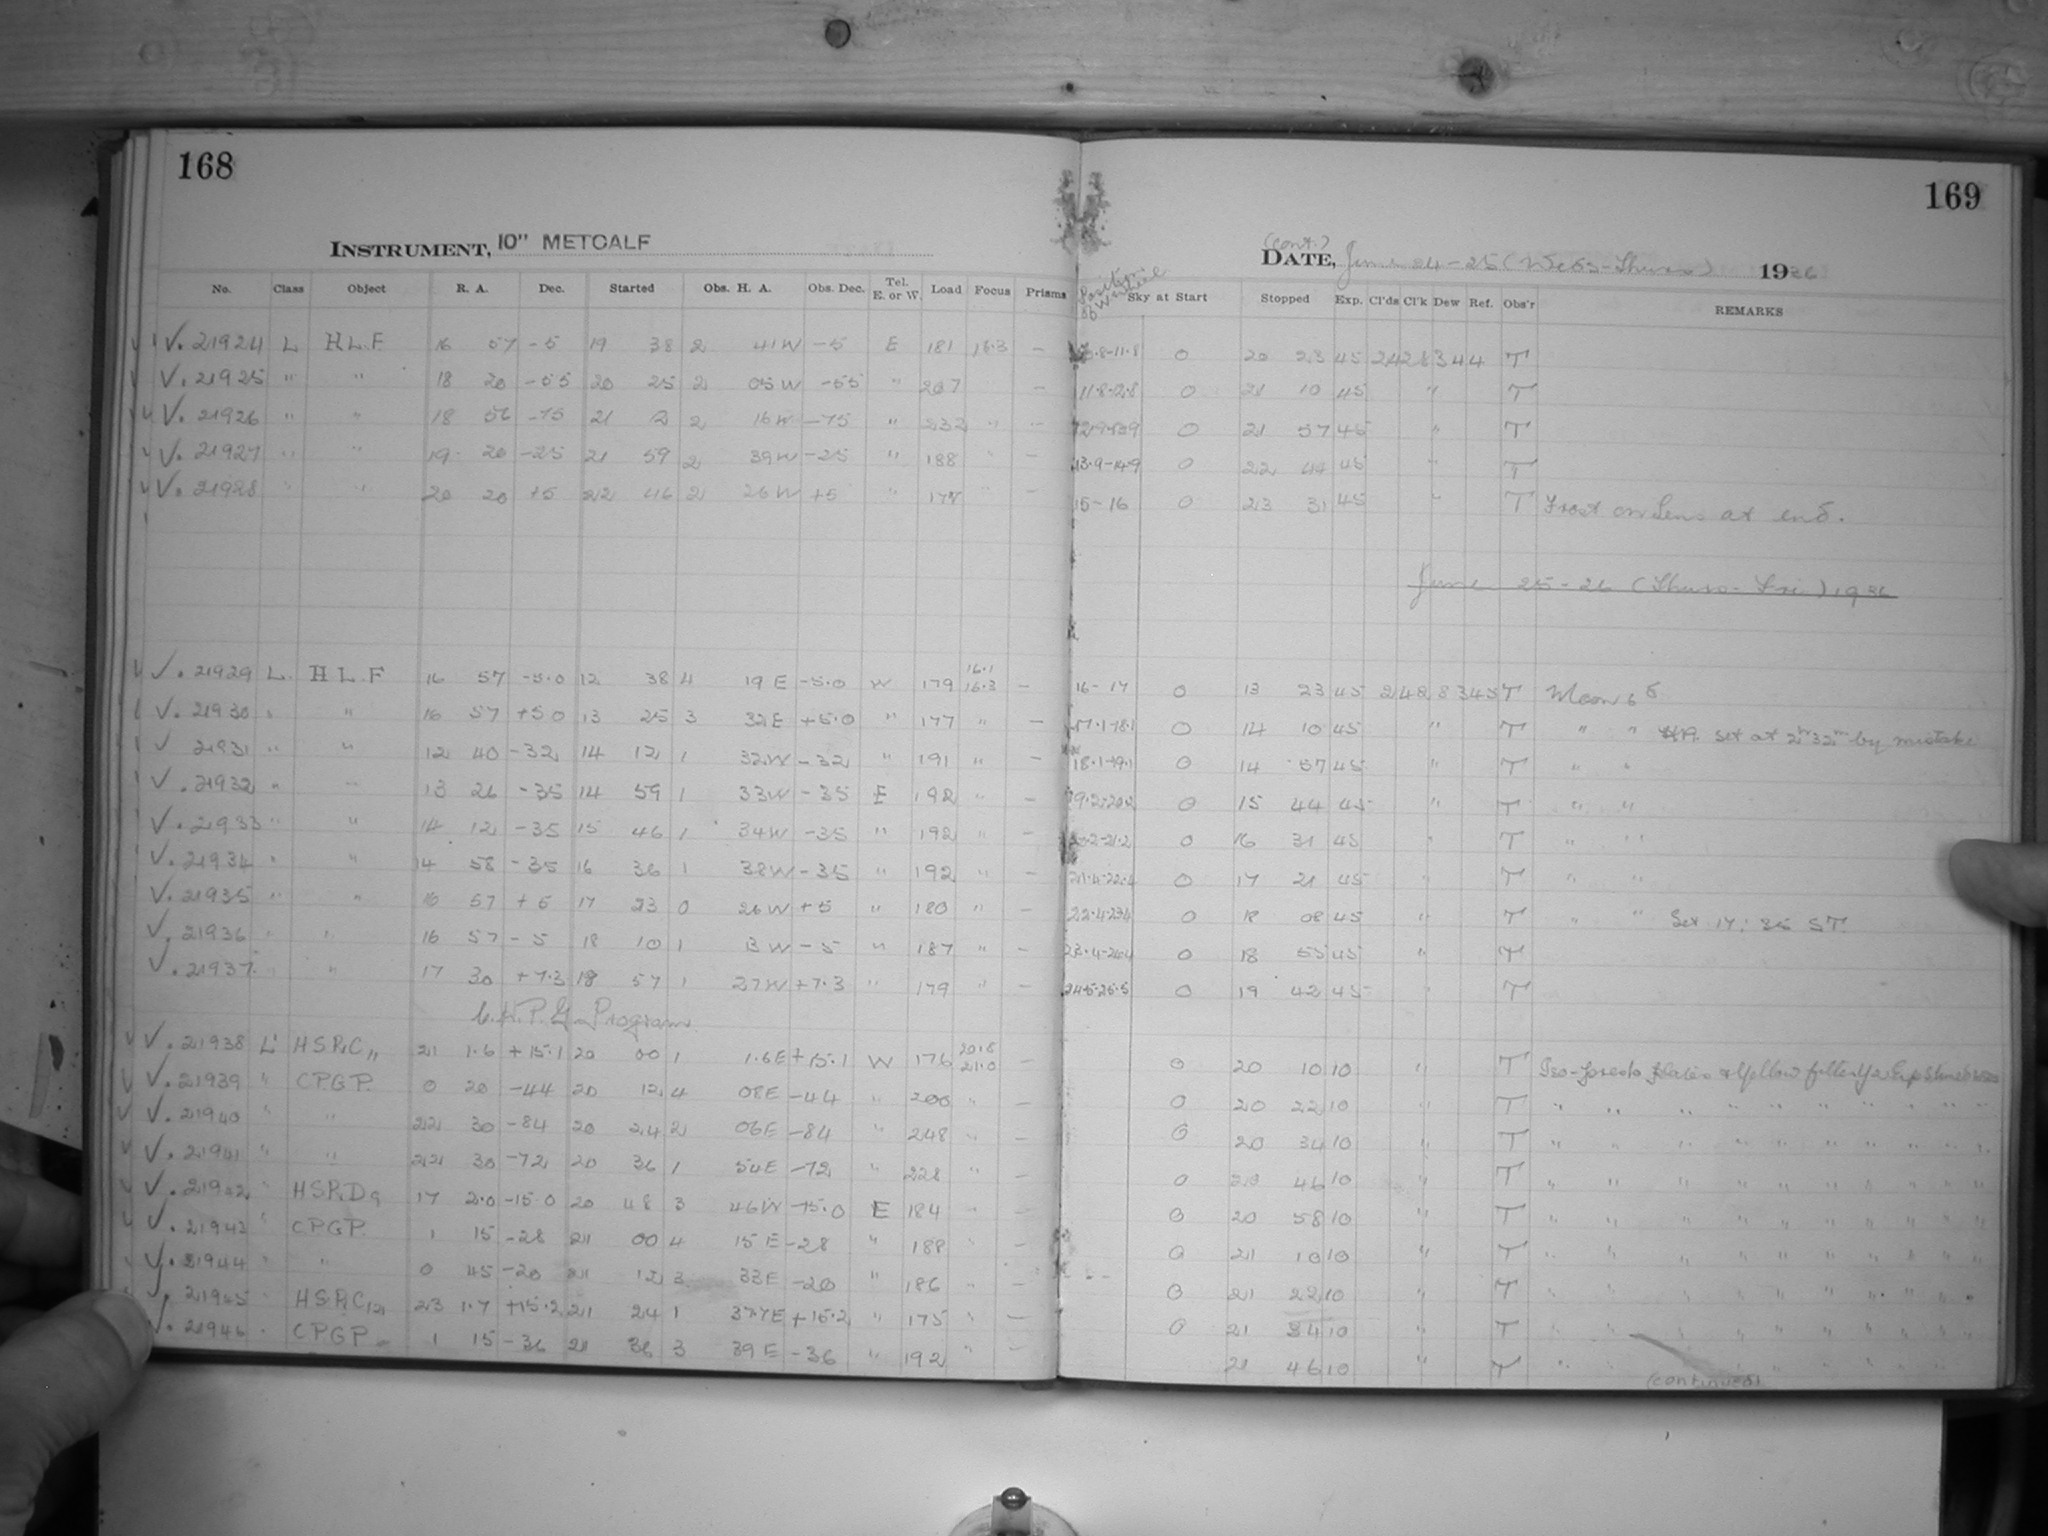 168
169
INSTRUMENT, 10" METCALF
(cont.)
DATE, June 24-25 (Weds-Thurs) 1936
No. Class Object R. A. Dec. Started Obs. H. A. Obs. Dec. Tel. E. or W. Load Focus Prisms Sky at Start Stopped Exp. Cl'ds Cl'k Dew Ref. Obs'r REMARKS
V. 21924 L H.L.F. 16 57 -5 19 38 2 41W -5 E 181 16.3 - 0 20 23 45 T
V. 21925 " " 18 20 -55 20 25 2 05W -55 " 207 - 11.8-12.8 0 21 10 45 " T
V. 21926 " " 18 56 -75 21 12 2 16W -75 " 232 " - 0 21 57 45 " T
V. 21927 " " 19 20 -25 21 59 2 39W -25 " 188 " - 13.9-14.9 0 22 44 45 " T
V. 21928 " " 20 20 +5 22 46 2 26W +5 " 178 " - 15-16 0 23 31 45 " T Frost on lens at end.
June 25-26 (Thurs-Fri) 1936
V. 21929 L. H L F 16 57 -5.0 12 38 4 19 E -5.0 W 179 16.1 16.3 - 16-17 0 13 23 45 T Moon
V. 21930 " " 16 57 +5.0 13 25 3 32E +5.0 " 177 " - 17.1-18.1 0 14 10 45 " T " " H.A. set at 2h 32m by mistake
V 21931 " " 12 40 -32 14 12 1 32W -32 " 191 " - 18.1-19.1 0 14 57 45 " T " "
V. 21932 " " 13 26 -35 14 59 1 33W -35 E 192 " - 19.2-20.2 0 15 44 45 " T " "
V. 21933 " " 14 12 -35 15 46 1 34W -35 " 192 " - 20.2-21.2 0 16 31 45 " T " "
V. 21934 " " 14 58 -35 16 36 1 38W -35 " 192 " - 21.4-22.4 0 17 21 45 " T " "
V. 21935 " " 16 57 +5 17 23 0 26W +5 " 180 " - 22.4-23.4 0 18 08 45 " T " " Set 17: ST.
V. 21936 " " 16 57 -5 18 10 1 13W -5 " 187 " - 23.4-24.4 0 18 55 45 " T
V. 21937 " " 17 30 +7.3 18 57 1 27W +7.3 " 179 " - 24.5-25.5 0 19 42 45 " T
C.H.P.G. Program
V. 21938 L' H.S.P.C 21 1.6 +15.1 20 00 1 1.6E +15.1 W 176 20.8 21.0 - 0 20 10 10 " T plates & Yellow filter
V. 21939 " C.P.G.P. 0 20 -44 20 12 4 08E -44 " 200 " - 0 20 22 10 " T " " " " " " " "
V. 21940 " " 22 30 -84 20 24 2 06E -84 " 248 " - 0 20 34 10 " T " " " " " " " "
V. 21941 " " 22 30 -72 20 36 1 54E -72 " 228 " - 0 20 46 10 " T " " " " " " " "
V. 21942 " H.S.P.D 9 17 2.0 -15.0 20 48 3 46W -15.0 E 184 " - 0 20 58 10 " T " " " " " " " "
V. 21943 " C.P.G.P. 1 15 -28 21 00 4 15E -28 " 188 " - 0 21 10 10 " T " " " " " " " "
V. 21944 " " 0 45 -20 21 12 3 33E -20 " 186 " - 0 21 22 10 " T " " " " " " " "
V. 21945 " H.S.P.C 121 23 1.7 +15.2 21 24 1 37.7E +15.2 " 175 " - 0 21 34 10 " T " " " " " " " "
V. 21946 " C.P.G.P. 1 15 -36 21 36 3 39E -36 " 192 " - 21 46 10 " T " " " " " " " "
(continued)